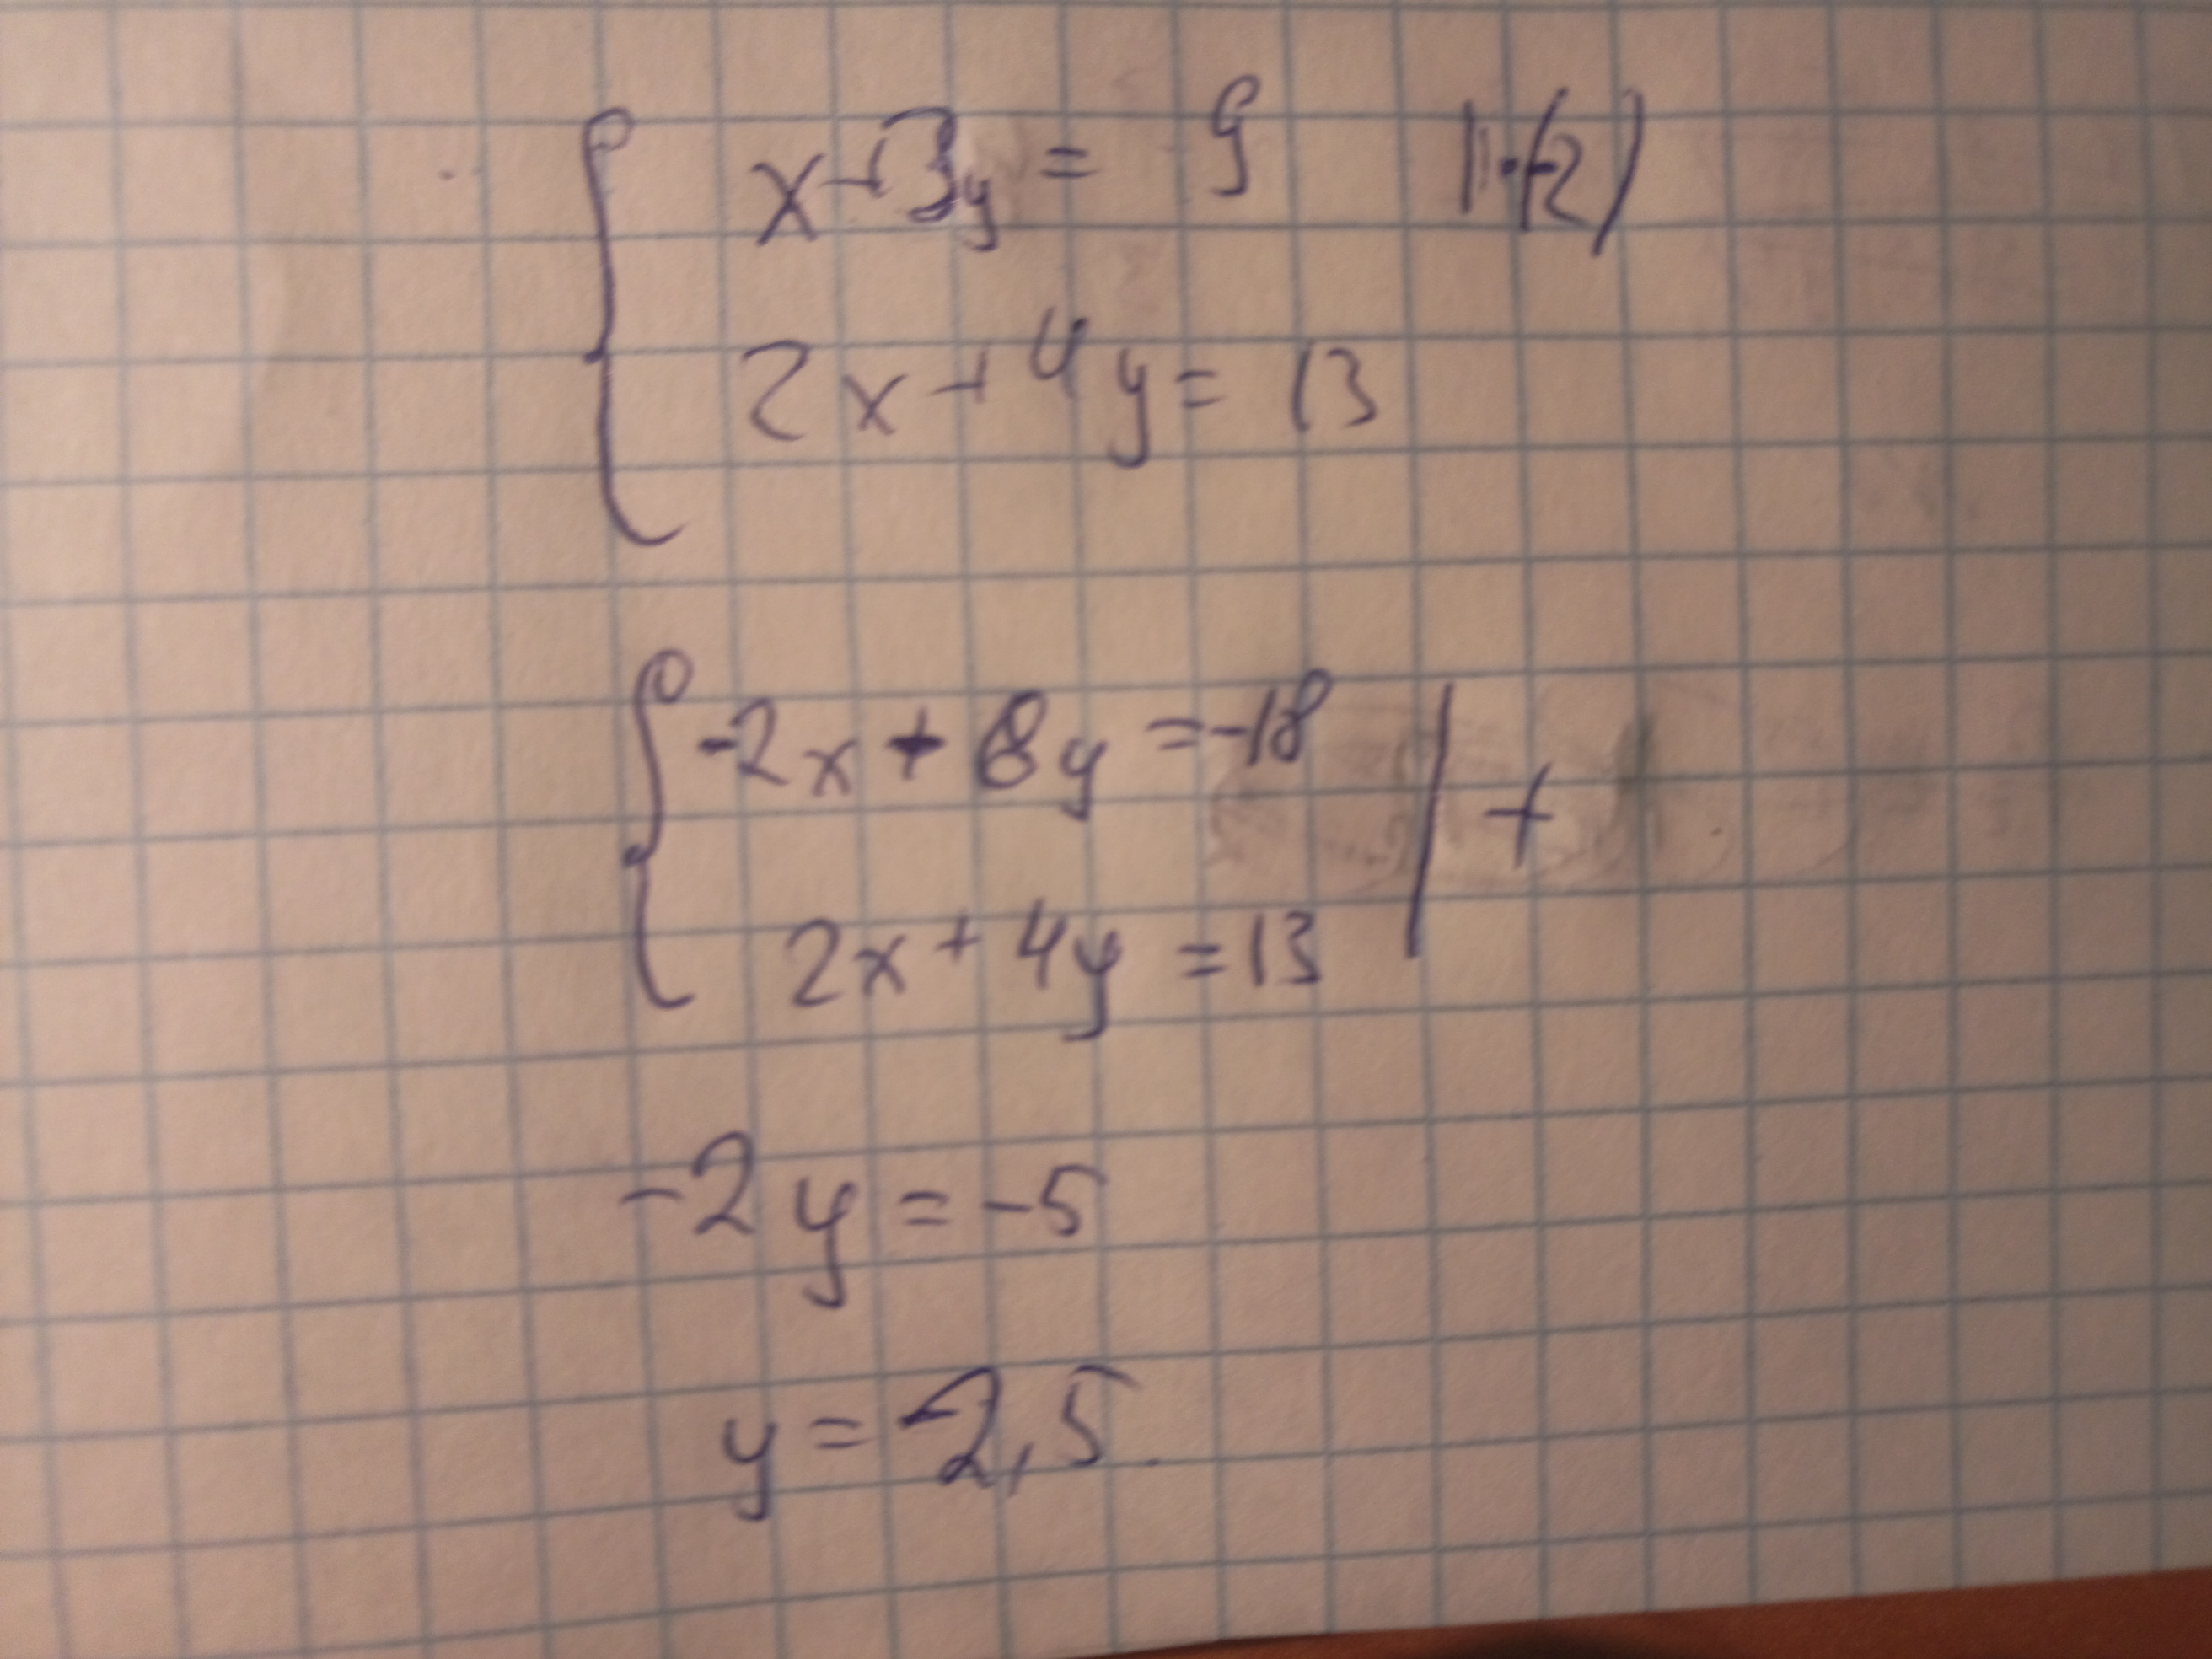 x+3y = 9 |·(-2)
2x+4y = 13
-2x + 6y = -18 | +
2x + 4y = 13
-2y = -5
y = -2,5